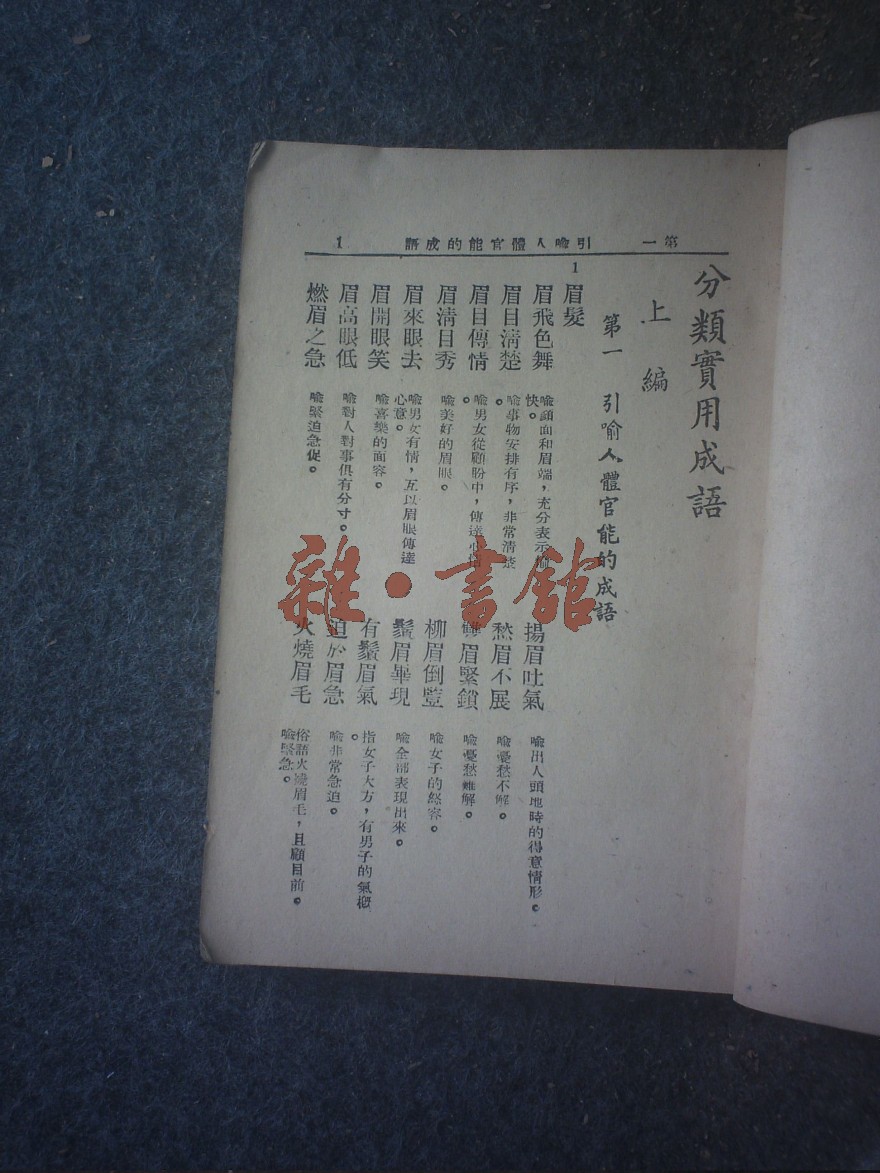 第一 引喻人體官能的成語 1
分類實用成語
上編
第一 引喻人體官能的成語
1 眉髮
眉飛色舞
喻顏面和眉端，充分表示愉
快。
眉目清楚
喻事物安排有序，非常清楚
。
眉目傳情
喻男女從顧盼中，傳達心
。
眉清目秀
喻美好的眉眼。
眉來眼去
喻男女有情，互以眉眼傳達
心意。
眉開眼笑
喻喜樂的面容。
眉高眼低
喻對人對事俱有分寸。
燃眉之急
喻緊迫急促。
揚眉吐氣
喻出人頭地時的得意情形。
愁眉不展
喻憂愁不解。
眉緊鎖
喻憂愁難解。
柳眉倒豎
喻女子的怒容。
鬚眉畢現
喻全部表現出來。
有鬚眉氣
指女子大方，有男子的氣概
。
迫於眉急
喻非常急迫。
火燒眉毛
俗語火燒眉毛，且顧目前。
喻緊急。
雜·書館